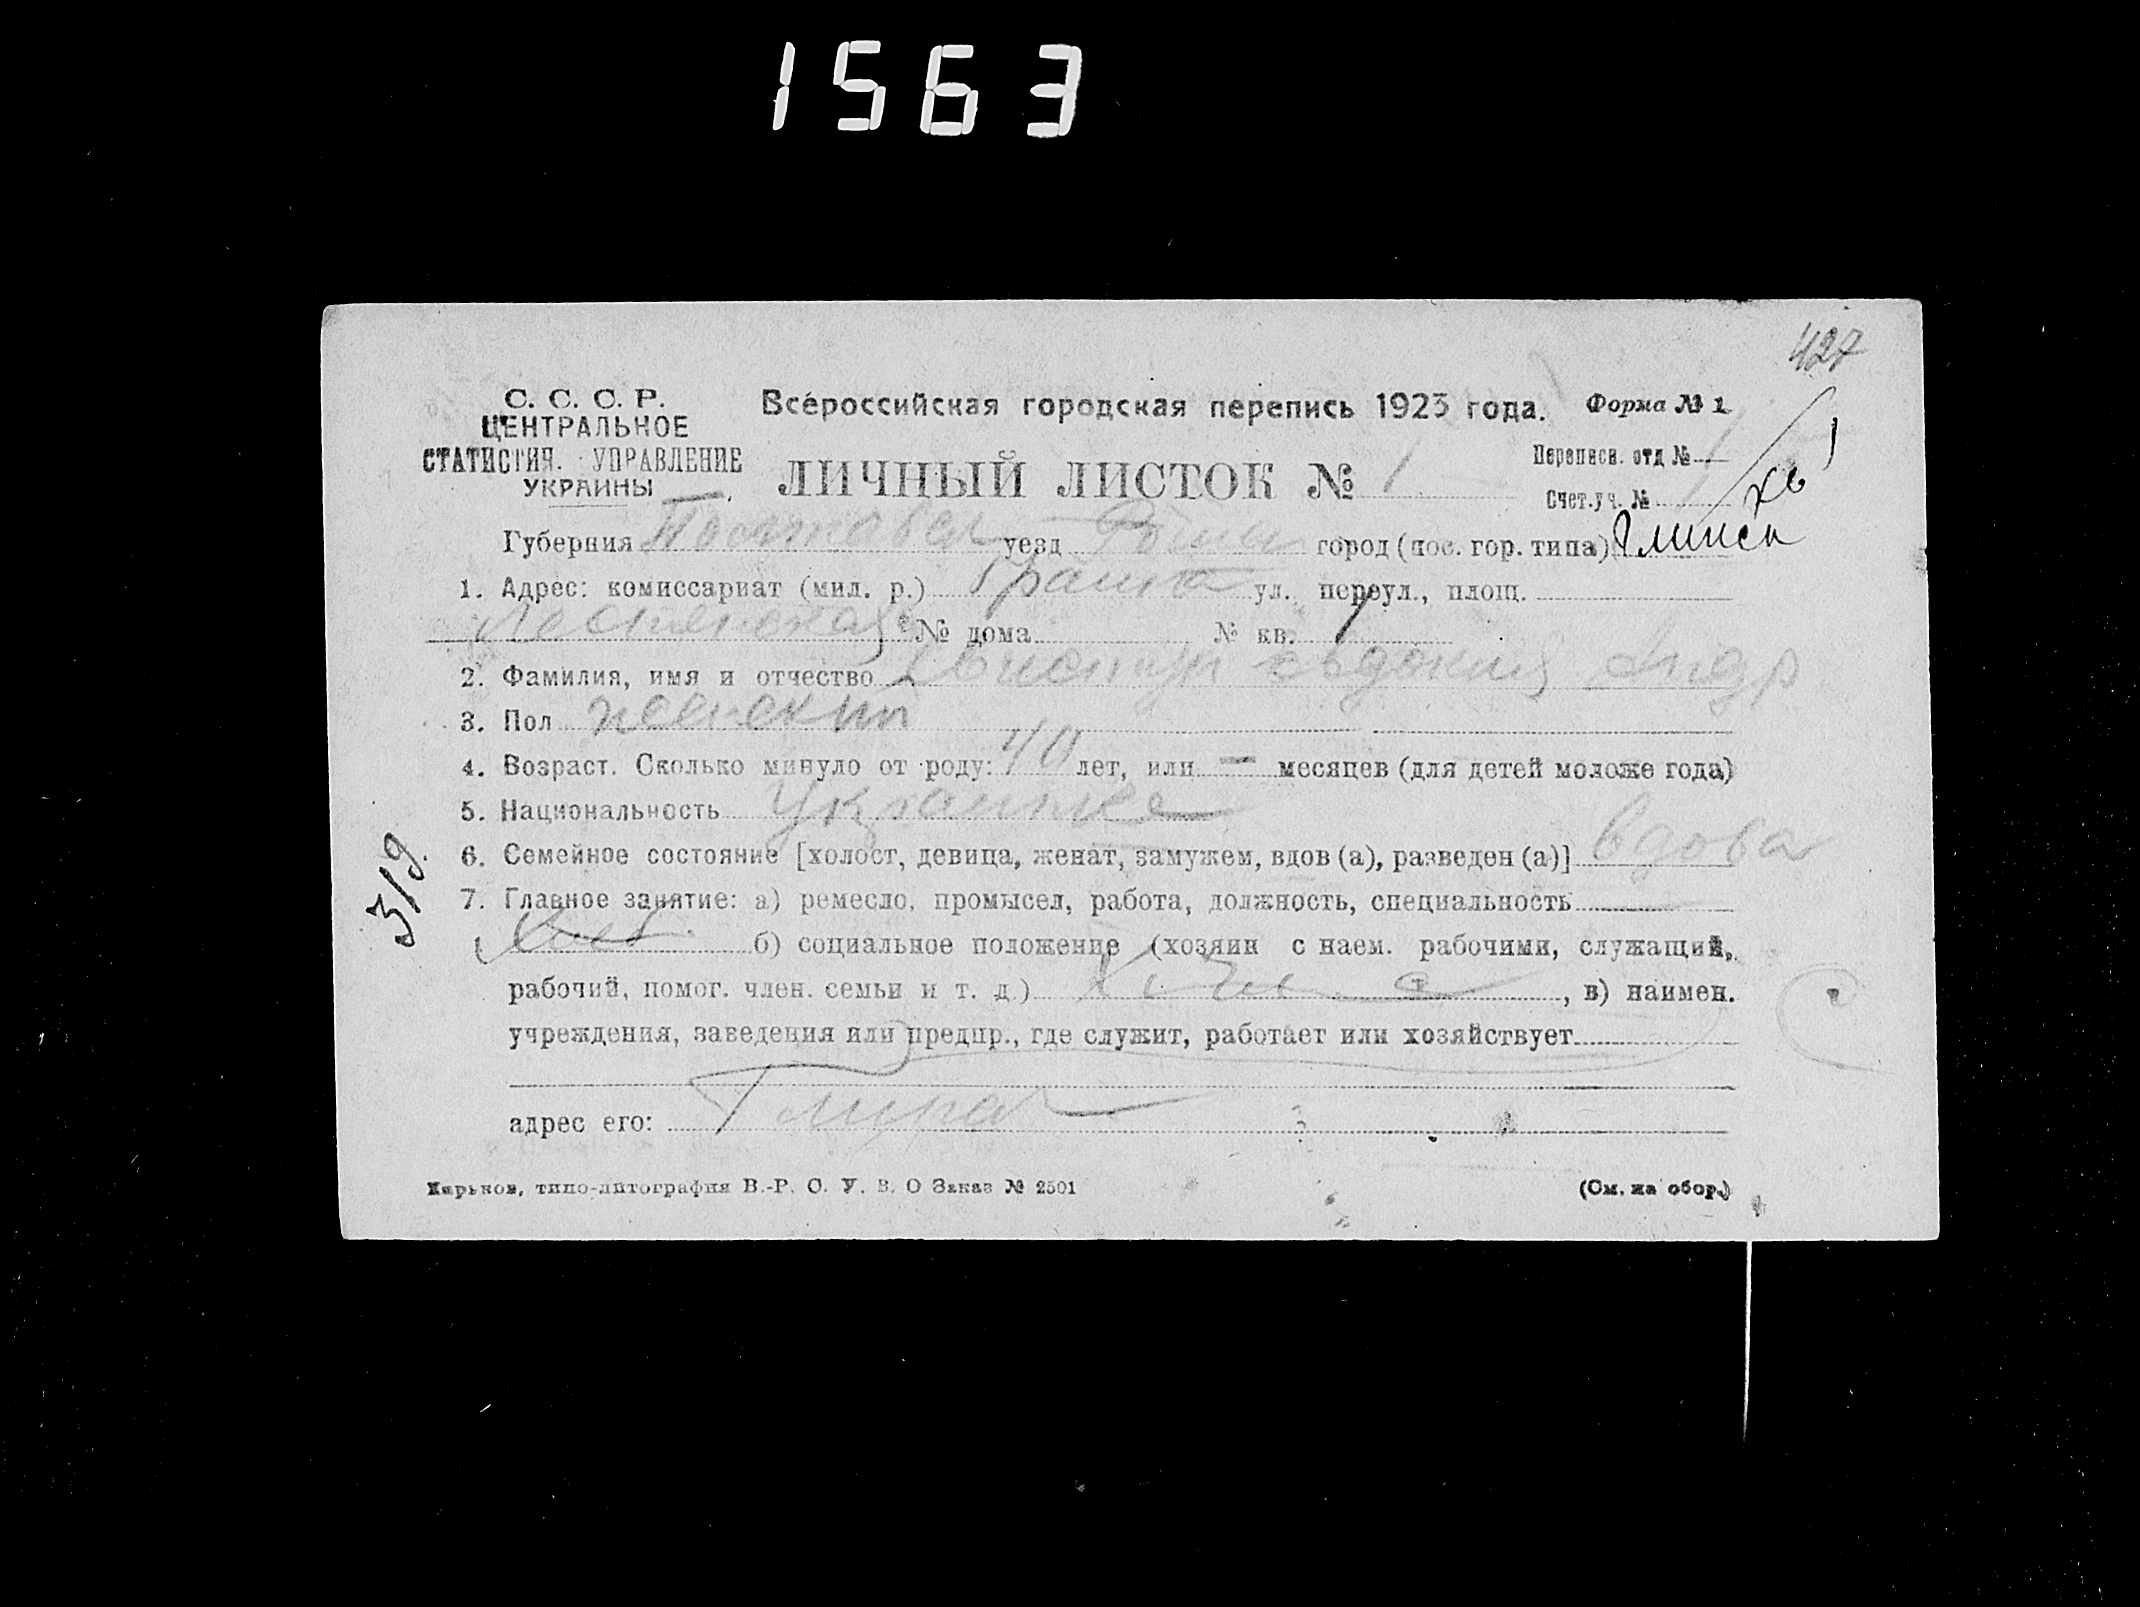 1563
427
С. С. С. Р.
ЦЕНТРАЛЬНОЕ
СТАТИСТИЧ. УПРАВЛЕНИЕ
УКРАИНЫ
Всероссийская городская перепись 1923 года. Форма № 1
ЛИЧНЫЙ ЛИСТОК № 1
Переписн. отд № 1
Счет.уч. №
Губерния Полтавская уезд Ромны город (пос. гор. типа) Глинск
1. Адрес: комиссариат (мил. р.) ул. переул., площ.
№ дома № кв.
2. Фамилия, имя и отчество Евдокия Андр
3. Пол женский
4. Возраст. Сколько минуло от роду: 40 лет, или — месяцев (для детей моложе года)
5. Национальность Украинка
6. Семейное состояние [холост, девица, женат, замужем, вдов (а), разведен (а)] вдова
7. Главное занятие: а) ремесло, промысел, работа, должность, специальность
б) социальное положение (хозяин с наем. рабочими, служащий,
рабочий, помог. член. семьи и т. д.) , в) наимен.
учреждения, заведения или предпр., где служит, работает или хозяйствует
адрес его:
319.
Харьков, типо-литография В.-Р. С. У. В. О Заказ № 2501
(См. на обор.)